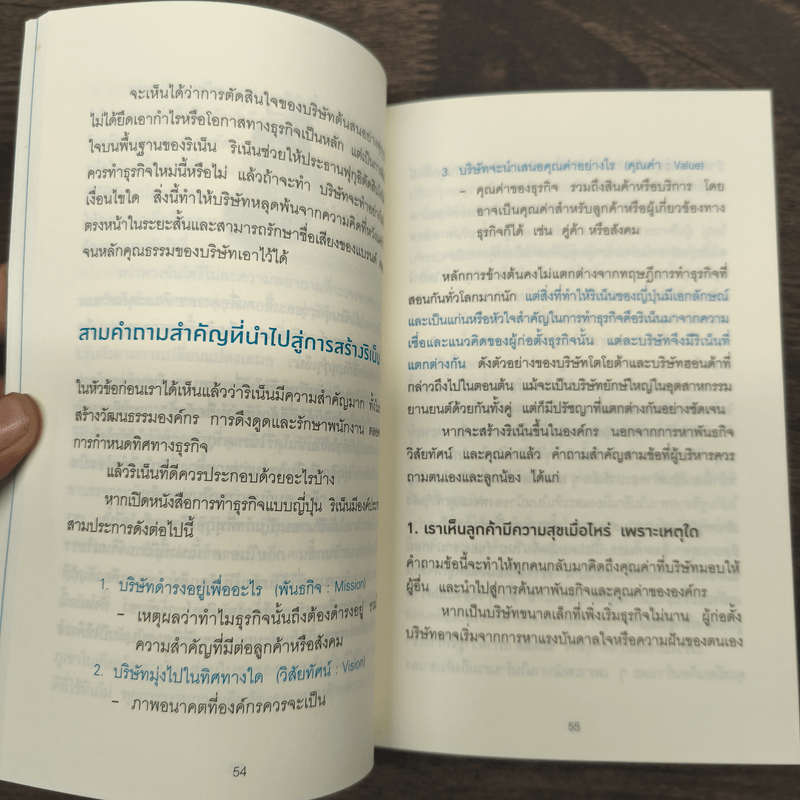 จะเห็นได้ว่าการตัดสินใจของบริษัทต้นสนอย่าง
ไม่ได้ยึดเอากำไรหรือโอกาสทางธุรกิจเป็นหลัก แต่เป็นการ
ใจบนพื้นฐานของริเน็น ริเน็นช่วยให้ประธานฟุกุอิตัดสินใจ
ควรทำธุรกิจใหม่นี้หรือไม่ แล้วถ้าจะทำ บริษัทจะทำอย่างไร
เงื่อนไขใด สิ่งนี้ทำให้บริษัทหลุดพ้นจากความคิดที่หวัง
ตรงหน้าในระยะสั้นและสามารถรักษาชื่อเสียงของแบรนด์
จนหลักคุณธรรมของบริษัทเอาไว้ได้
สามคำถามสำคัญที่นำไปสู่การสร้างริเน็น
ในหัวข้อก่อนเราได้เห็นแล้วว่าริเน็นมีความสำคัญมาก ทั้งใน
สร้างวัฒนธรรมองค์กร การดึงดูดและรักษาพนักงาน ตลอด
การกำหนดทิศทางธุรกิจ
แล้วริเน็นที่ดีควรประกอบด้วยอะไรบ้าง
หากเปิดหนังสือการทำธุรกิจแบบญี่ปุ่น ริเน็นมีองค์ประกอบ
สามประการดังต่อไปนี้
1. บริษัทดำรงอยู่เพื่ออะไร (พันธกิจ : Mission)
– เหตุผลว่าทำไมธุรกิจนั้นถึงต้องดำรงอยู่
ความสำคัญที่มีต่อลูกค้าหรือสังคม
2. บริษัทมุ่งไปในทิศทางใด (วิสัยทัศน์ : Vision)
– ภาพอนาคตที่องค์กรควรจะเป็น
54
3. บริษัทจะนำเสนอคุณค่าอย่างไร (คุณค่า : Value)
– คุณค่าของธุรกิจ รวมถึงสินค้าหรือบริการ โดย
อาจเป็นคุณค่าสำหรับลูกค้าหรือผู้เกี่ยวข้องทาง
ธุรกิจก็ได้ เช่น คู่ค้า หรือสังคม
หลักการข้างต้นคงไม่แตกต่างจากทฤษฎีการทำธุรกิจที่
สอนกันทั่วโลกมากนัก แต่สิ่งที่ทำให้ริเน็นของญี่ปุ่นมีเอกลักษณ์
และเป็นแก่นหรือหัวใจสำคัญในการทำธุรกิจคือริเน็นมาจากความ
เชื่อและแนวคิดของผู้ก่อตั้งธุรกิจนั้น แต่ละบริษัทจึงมีริเน็นที่
แตกต่างกัน ดังตัวอย่างของบริษัทโตโยต้าและบริษัทฮอนด้าที่
กล่าวถึงไปในตอนต้น แม้จะเป็นบริษัทยักษ์ใหญ่ในอุตสาหกรรม
ยานยนต์ด้วยกันทั้งคู่ แต่ก็มีปรัชญาที่แตกต่างกันอย่างชัดเจน
หากจะสร้างริเน็นขึ้นในองค์กร นอกจากการหาพันธกิจ
วิสัยทัศน์ และคุณค่าแล้ว คำถามสำคัญสามข้อที่ผู้บริหารควร
ถามตนเองและลูกน้อง ได้แก่
1. เราเห็นลูกค้ามีความสุขเมื่อไหร่ เพราะเหตุใด
คำถามข้อนี้จะทำให้ทุกคนกลับมาคิดถึงคุณค่าที่บริษัทมอบให้
ผู้อื่น และนำไปสู่การค้นหาพันธกิจและคุณค่าขององค์กร
หากเป็นบริษัทขนาดเล็กที่เพิ่งเริ่มธุรกิจไม่นาน ผู้ก่อตั้ง
บริษัทอาจเริ่มจากการหาแรงบันดาลใจหรือความฝันของตนเอง
55